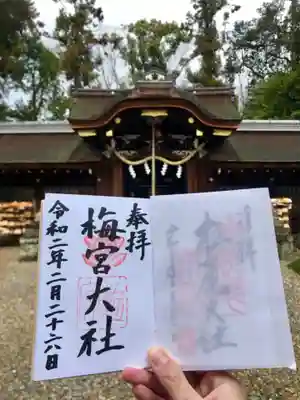 奉拝
梅宮大社
令和二年二月二十六日